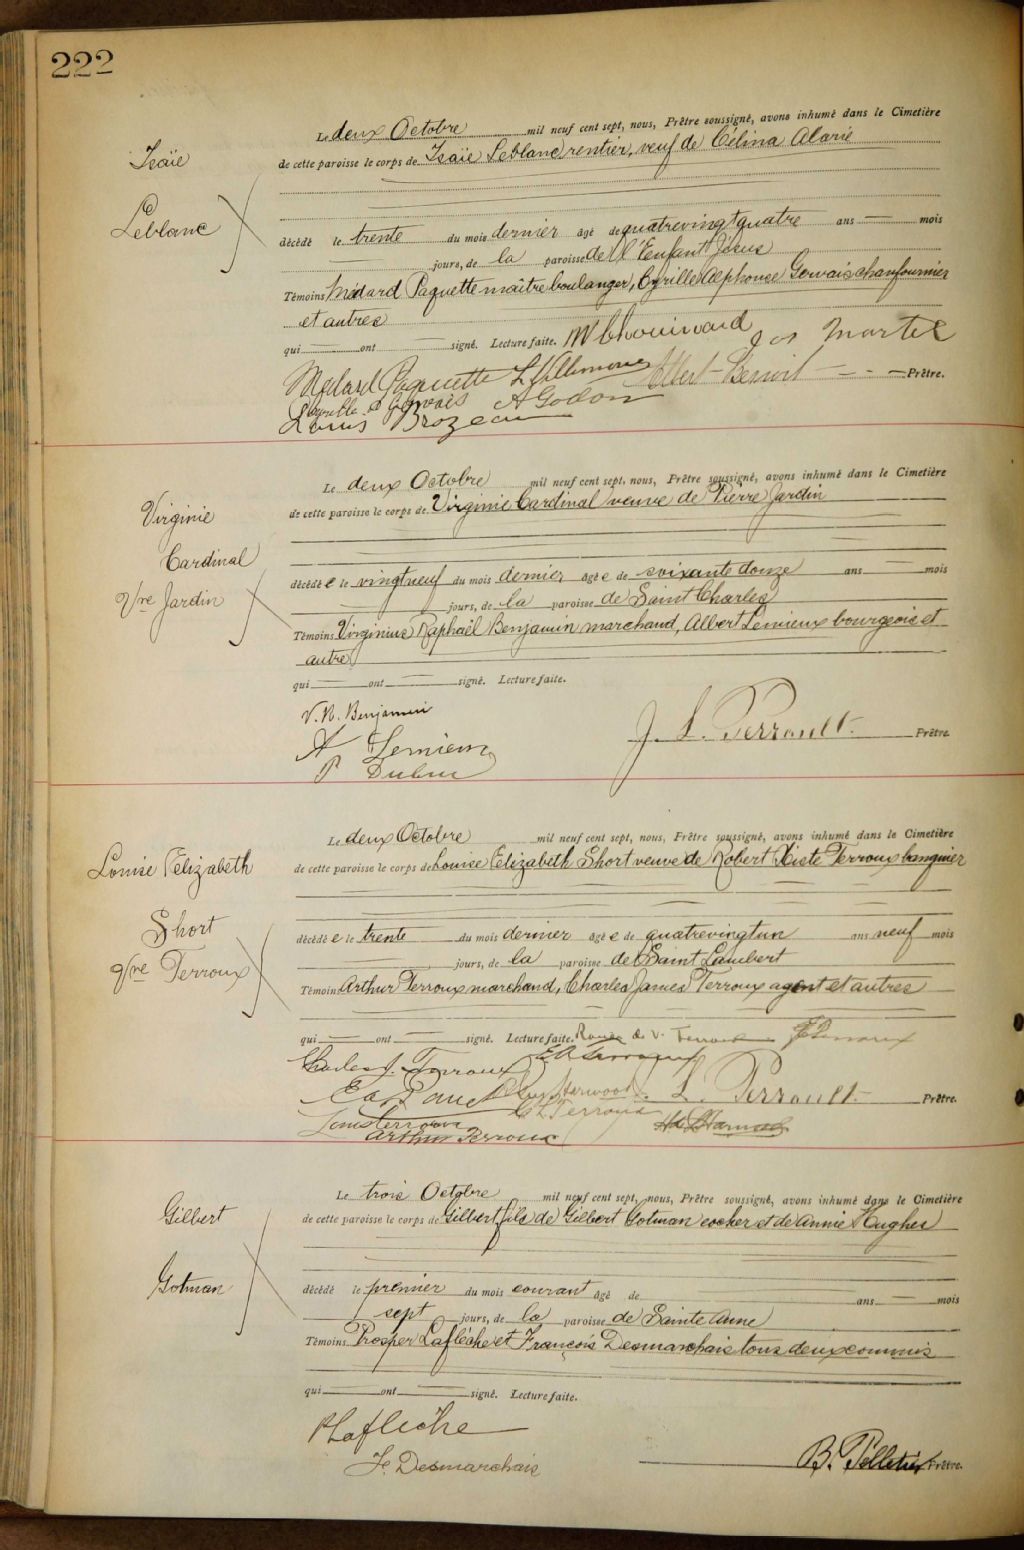 222
Isaïe
Leblanc
Le deux Octobre mil neuf cent sept, nous, Prêtre soussigné, avons inhumé dans le Cimetière
de cette paroisse le corps de Isaïe Leblanc, rentier, veuf de Célina Alarie
décédé le trente du mois dernier âgé de quatrevingtquatre ans — mois
— jours, de la paroisse de l'Enfant Jésus
Témoins Médard Paquette maître boulanger, Cyrille Alphonse Gervais chaufournier
et autres
qui — ont — signé. Lecture faite. M Chouinard Jos Martel
Médard Paquette L. Villemaire Albert Benoit — Prêtre.
Cyrille A Gervais A Godon
Louis Brozeau
Virginie
Cardinal
Vve Jardin
Le deux Octobre mil neuf cent sept, nous, Prêtre soussigné, avons inhumé dans le Cimetière
de cette paroisse le corps de Virginie Cardinal veuve de Pierre Jardin
décédée le vingtneuf du mois dernier âgée de soixante douze ans — mois
— jours, de la paroisse de Saint Charles
Témoins Virginius Raphaël Benjamin marchand, Albert Lemieux bourgeois et
autre
qui — ont — signé. Lecture faite.
V. R. Benjamin
A Lemieux
P Dubuc
J. L. Perrault Prêtre.
Louise Elizabeth
Short
Vve Terroux
Le deux Octobre mil neuf cent sept, nous, Prêtre soussigné, avons inhumé dans le Cimetière
de cette paroisse le corps de Louise Elizabeth Short veuve de Robert Xiste Terroux banquier
décédée le trente du mois dernier âgée de quatrevingtun ans neuf mois
— jours, de la paroisse de Saint Lambert
Témoins Arthur Terroux marchand, Charles James Terroux agent et autres
qui — ont — signé. Lecture faite.
Charles J. Terroux
Harwood L. Perrault Prêtre.
C L Terroux
Arthur Terroux
Gilbert
Gotman
Le trois Octobre mil neuf cent sept, nous, Prêtre soussigné, avons inhumé dans le Cimetière
de cette paroisse le corps de Gilbert, fils de Gilbert Gotman cocher et de Annie Hughes
décédé le premier du mois courant âgé de ans — mois
sept jours, de la paroisse de Sainte Anne
Témoins Prosper Laflèche et François Desmarchais tous deux commis
qui — ont — signé. Lecture faite.
P Laflèche
F. Desmarchais
B. Pelletier Prêtre.